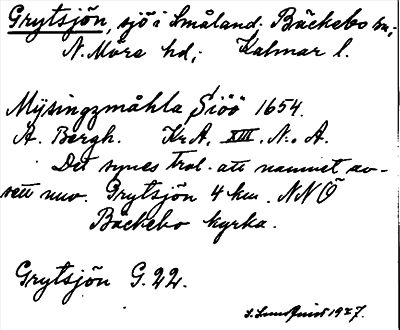 Grytsjön, sjö i Småland. Bäckebo sn;
N. Möre hd; Kalmar l.
Mÿsingzmåhla Siöö 1654.
A. Bergh. KrA, XIII, N:o A.
Det synes trol. att namnet av-
sett nuv. Grytsjön 4 km. NNÖ
Bäckebo kyrka.
Grytsjön G.22.
S. Lundquist 1927.